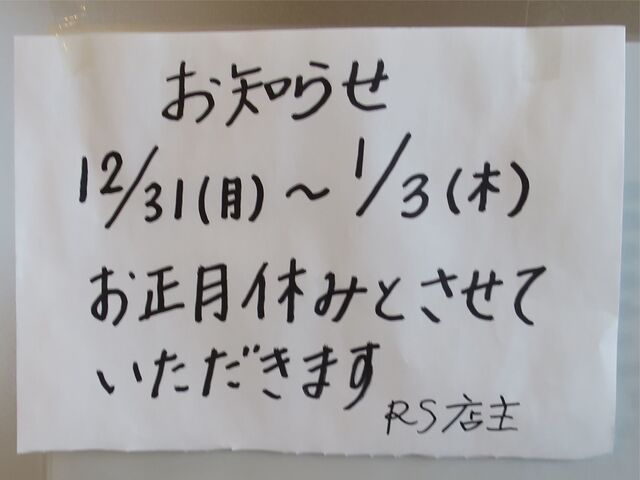 お知らせ
12/31(月)～1/3(木)
お正月休みとさせて
いただきます
RS店主